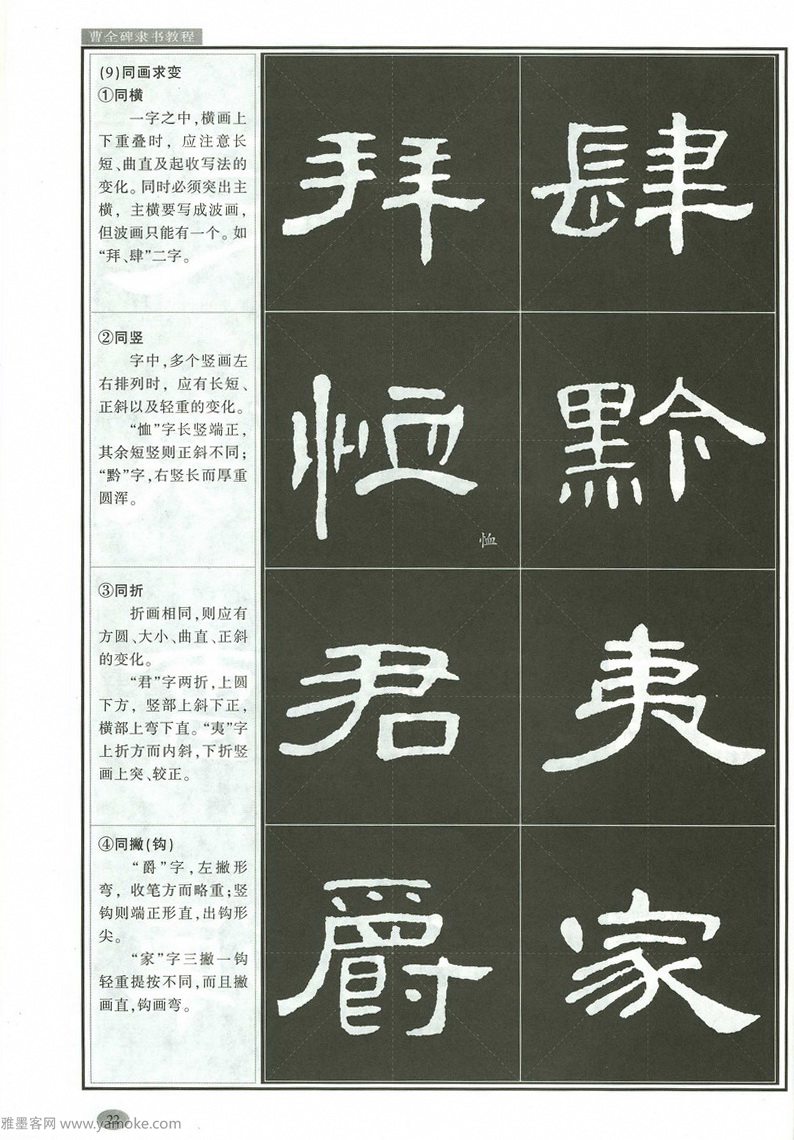 曹全碑隶书教程
(9)同画求变
①同横
一字之中,横画上
下重叠时，应注意长
短、曲直及起收写法的
变化。同时必须突出主
横，主横要写成波画，
但波画只能有一个。如
“拜、肆”二字。
拜 肆
②同竖
字中,多个竖画左
右排列时，应有长短、
正斜以及轻重的变化。
“恤”字长竖端正，
其余短竖则正斜不同；
“黔”字,右竖长而厚重
圆浑。
恤 黔
恤
③同折
折画相同,则应有
方圆、大小、曲直、正斜
的变化。
“君”字两折,上圆
下方，竖部上斜下正，
横部上弯下直。“夷”字
上折方而内斜,下折竖
画上突、较正。
君 夷
④同撇(钩)
“爵”字,左撇形
弯，收笔方而略重;竖
钩则端正形直,出钩形
尖。
“家”字三撇一钩
轻重提按不同,而且撇
画直,钩画弯。
爵 家
22
雅墨客网 www.yamoke.com